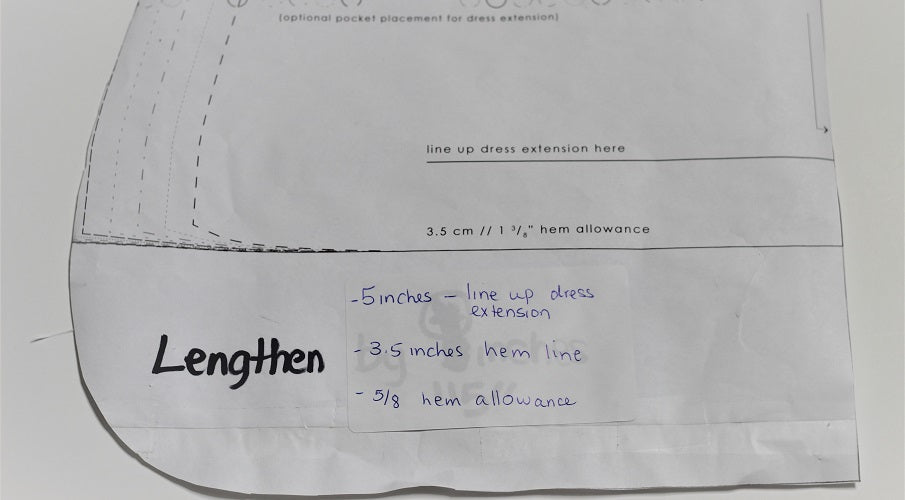 (optional pocket placement for dress extension)
line up dress extension here
3.5 cm // 1 3/8" hem allowance
-5 inches - line up dress
extension
Lengthen
- 3.5 inches hem line
- 5/8 hem allowance